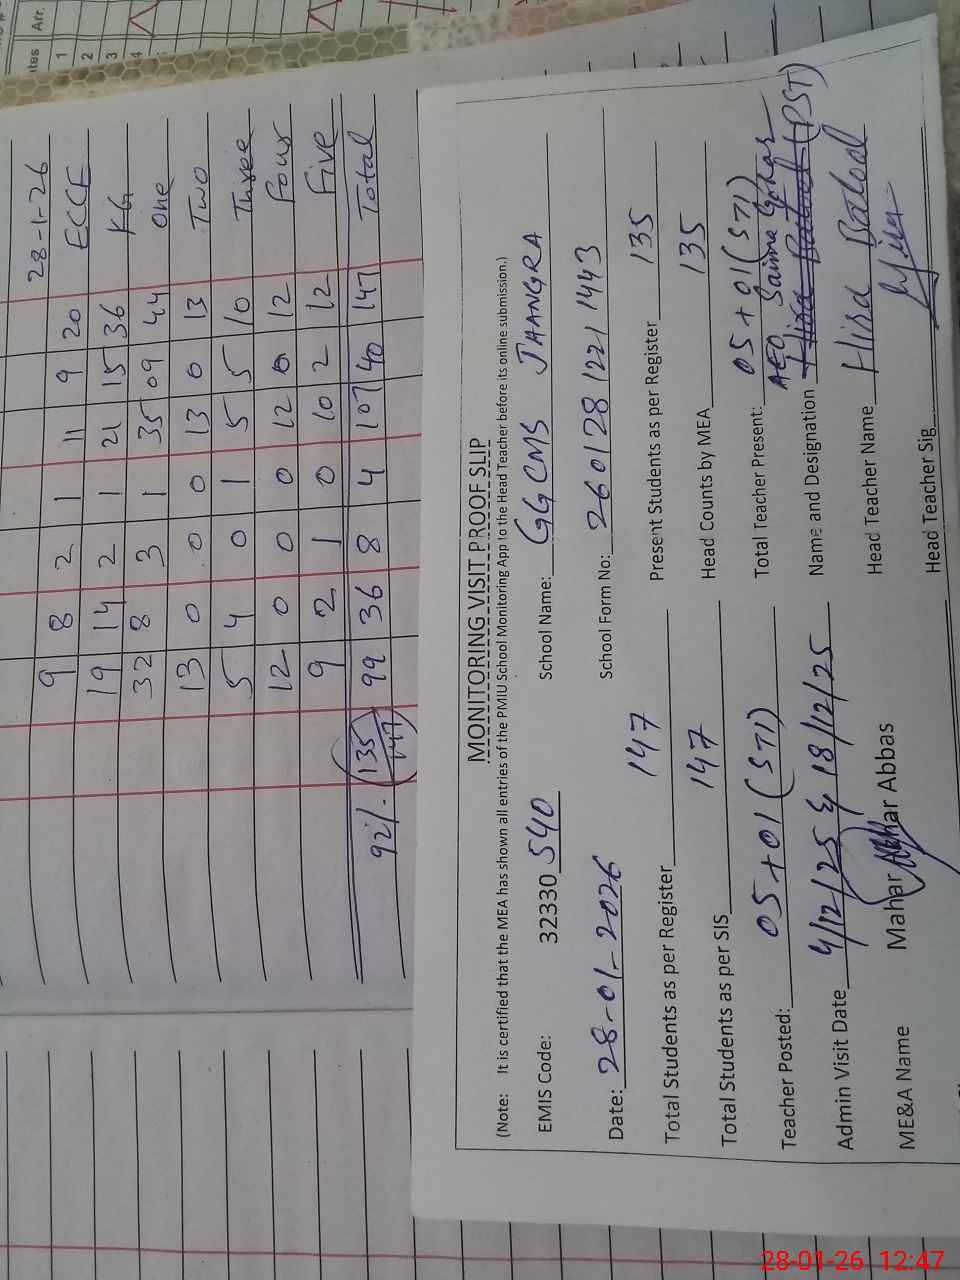 ites Arr.
1
2
3
4
28-1-26
ECCE 20 9 11 1 2 8 9
KG 36 15 21 1 2 14 19
One 44 09 35 1 3 8 32
Two 13 0 13 0 0 0 13
Three 10 5 5 1 0 4 5
Four 12 0 12 0 0 0 12
Five 12 2 10 0 1 2 9
Total 147 40 107 4 8 36 99 (135/147) 92%.
MONITORING VISIT PROOF SLIP
(Note: It is certified that the MEA has shown all entries of the PMIU School Monitoring App to the Head Teacher before its online submission.)
EMIS Code: 32330 540 School Name: GGCMS JHANGRA
Date: 28-01-2026 School Form No: 260128 1221 1443
Total Students as per Register 147 Present Students as per Register 135
Total Students as per SIS 147 Head Counts by MEA 135
Teacher Posted: 05+01 (STI) Total Teacher Present: 05+01 (STI)
AEO Saima
Admin Visit Date 4/12/25 & 18/12/25 Name and Designation Hisa Batool (PST)
ME&A Name Mahar Abbas Head Teacher Name Hisa Batool
Head Teacher Sig
28-01-26 12:47